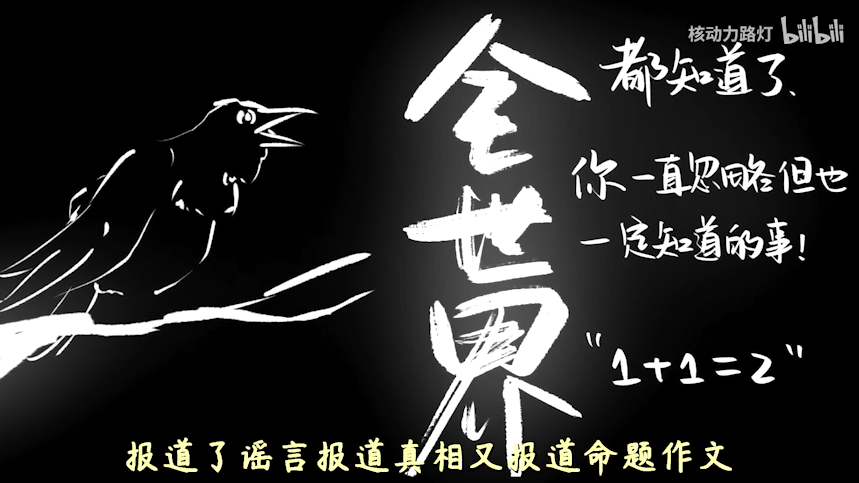 核动力路灯 bilibili
全世界
都知道了、
你一直忽略但也
一定知道的事!
"1+1=2"
报道了谣言报道真相又报道命题作文